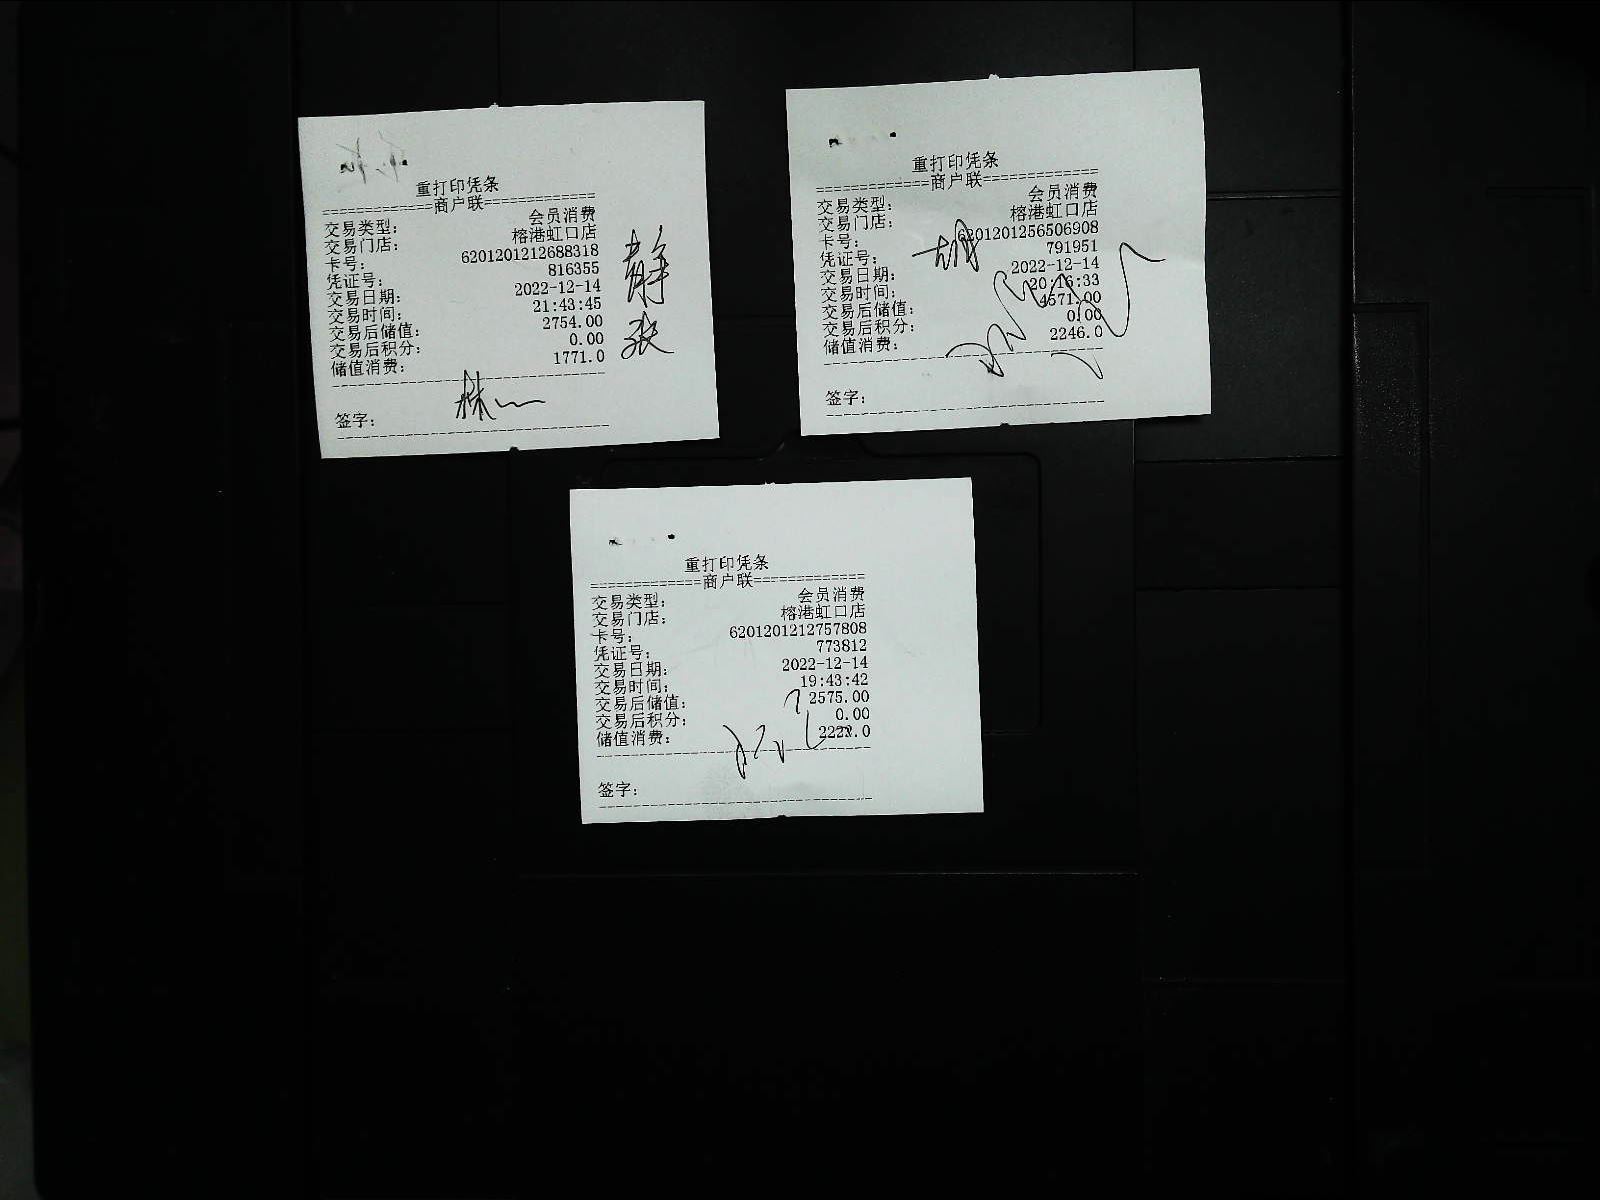 重打印凭条
=============商户联=============
交易类型: 会员消费
交易门店: 榕港虹口店
卡号: 6201201212688318
凭证号: 816355
交易日期: 2022-12-14
交易时间: 21:43:45
交易后储值: 2754.00
交易后积分: 0.00
储值消费: 1771.0
签字:
静
张
林
重打印凭条
=============商户联=============
交易类型: 会员消费
交易门店: 榕港虹口店
卡号: 6201201256506908
凭证号: 791951
交易日期: 2022-12-14
交易时间: 20:16:33
交易后储值: 4571.00
交易后积分: 0.00
储值消费: 2246.0
签字:
重打印凭条
=============商户联=============
交易类型: 会员消费
交易门店: 榕港虹口店
卡号: 6201201212757808
凭证号: 773812
交易日期: 2022-12-14
交易时间: 19:43:42
交易后储值: 2575.00
交易后积分: 0.00
储值消费:
签字: